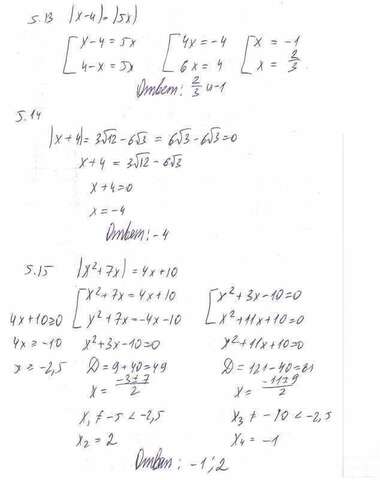 5.13 |x-4|=|5x|
[x-4=5x [4x=-4 [x=-1
[4-x=5x [6x=4 [x=2/3.
Ответ: 2/3 и -1
5.14
|x+4|=3√12-6√3=6√3-6√3=0
x+4=3√12-6√3
x+4=0
x=-4
Ответ: -4
5.15 |x²+7x|=4x+10
[x²+7x=4x+10 [x²+3x-10=0
4x+10≥0 [x²+7x=-4x-10 [x²+11x+10=0
4x≥-10 x²+3x-10=0 x²+11x+10=0
x≥-2,5 D=9+40=49 D=121-40=81
x=(-3±7)/2 x=(-11±9)/2
x₁≠-5<-2,5 x₃≠-10<-2,5
x₂=2 x₄=-1
Ответ: -1; 2